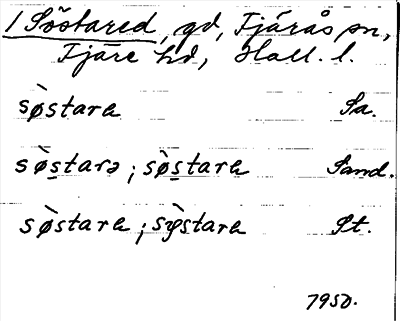 1 Söstared, gd, Fjärås sn,
Fjäre hd, Hall. l.
sø̀stara Sa.
sø̀starə ; sø̀stara Sand.
sø̀stara ; sỳstara St.
1950.